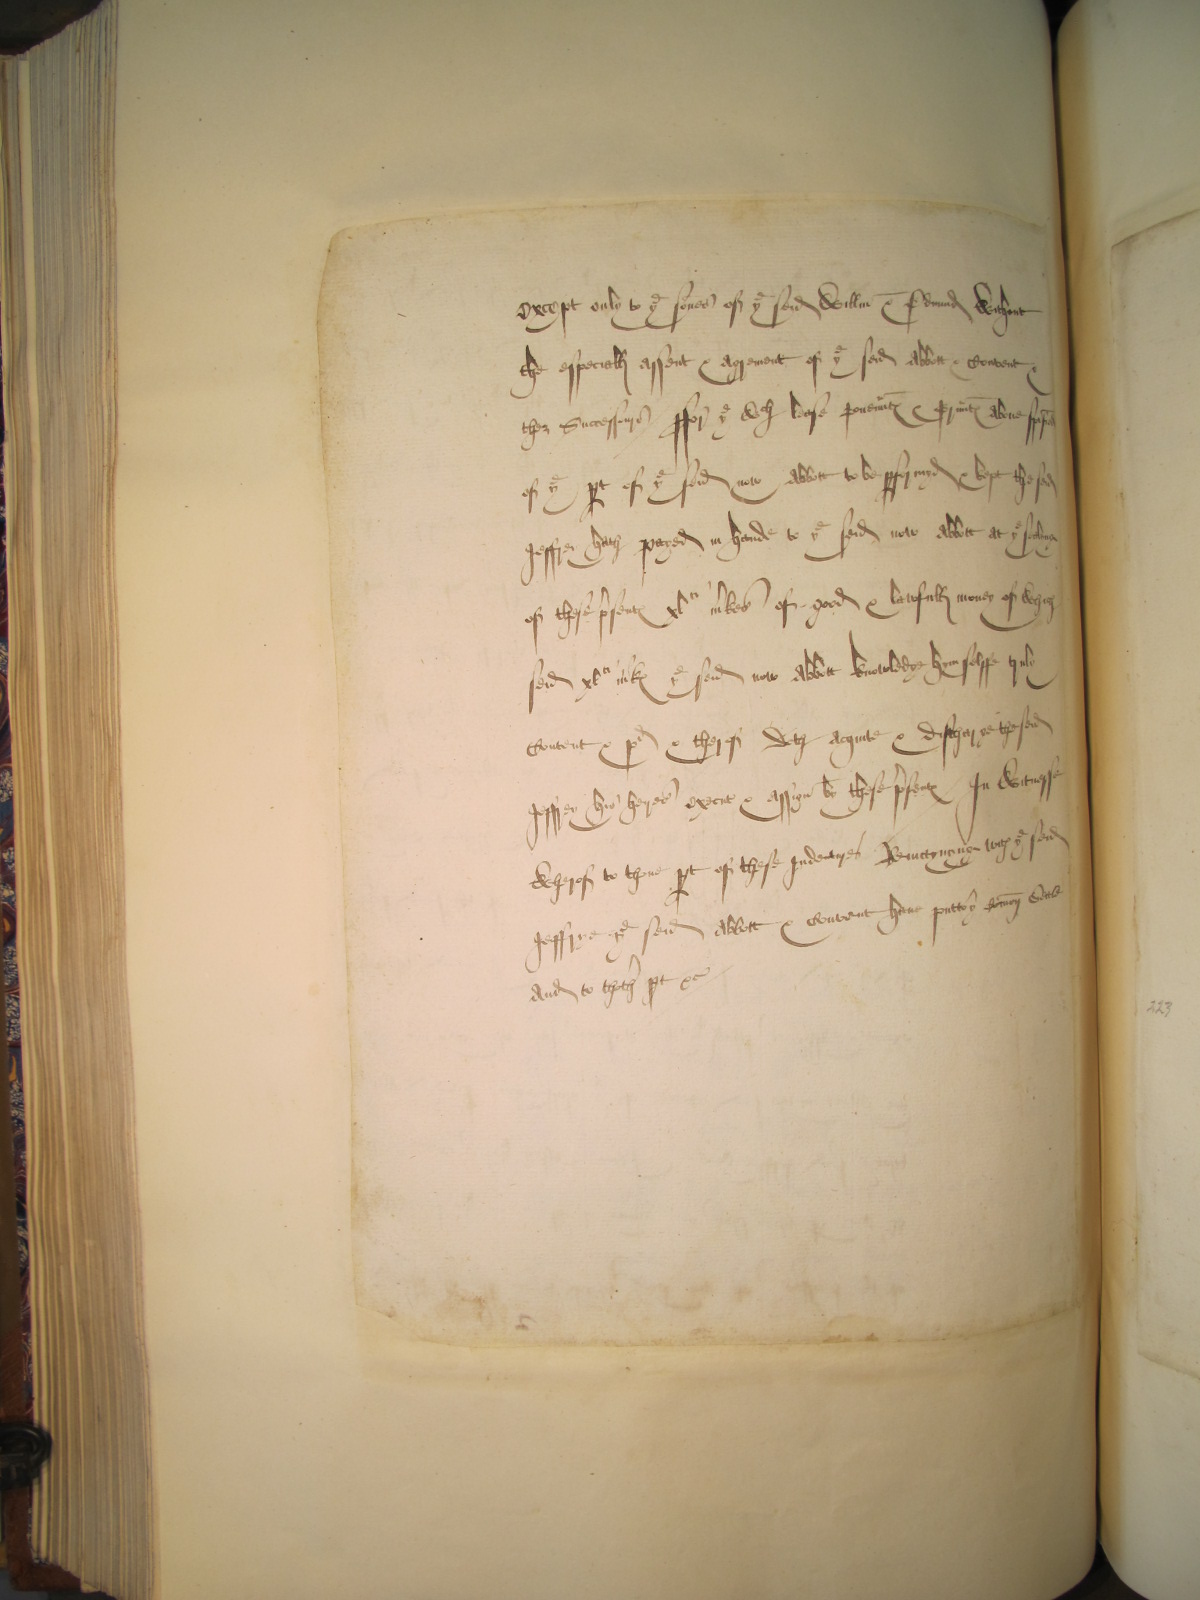 except only to ye sones of ye seid Willm & Edmund without
the especiall assent & agrement of ye seid Abbott & Covent &
ther Successours ffor ye wch lease covennts & grunts above
of ye pt of ye seid now Abbott to be pformyd & kept the seid
Jeffrey hath payed in hande to ye seid now Abbott at ye sealyng
of these psents xlti mrkes of good & lawfull money of which
seid xlti mrks ye seid now Abbott knowledge hym selffe truly
content & pd & therof doth acquite & discharge the seid
Jeffrey his heyres execut & assign by these psents In Witnesse
Wherof to thone pt of these Indentures Remaynyng with ye seid
Jeffrye ye seid Abbott & Covent have putto yr comon Seale
And to thothr pt &c
223